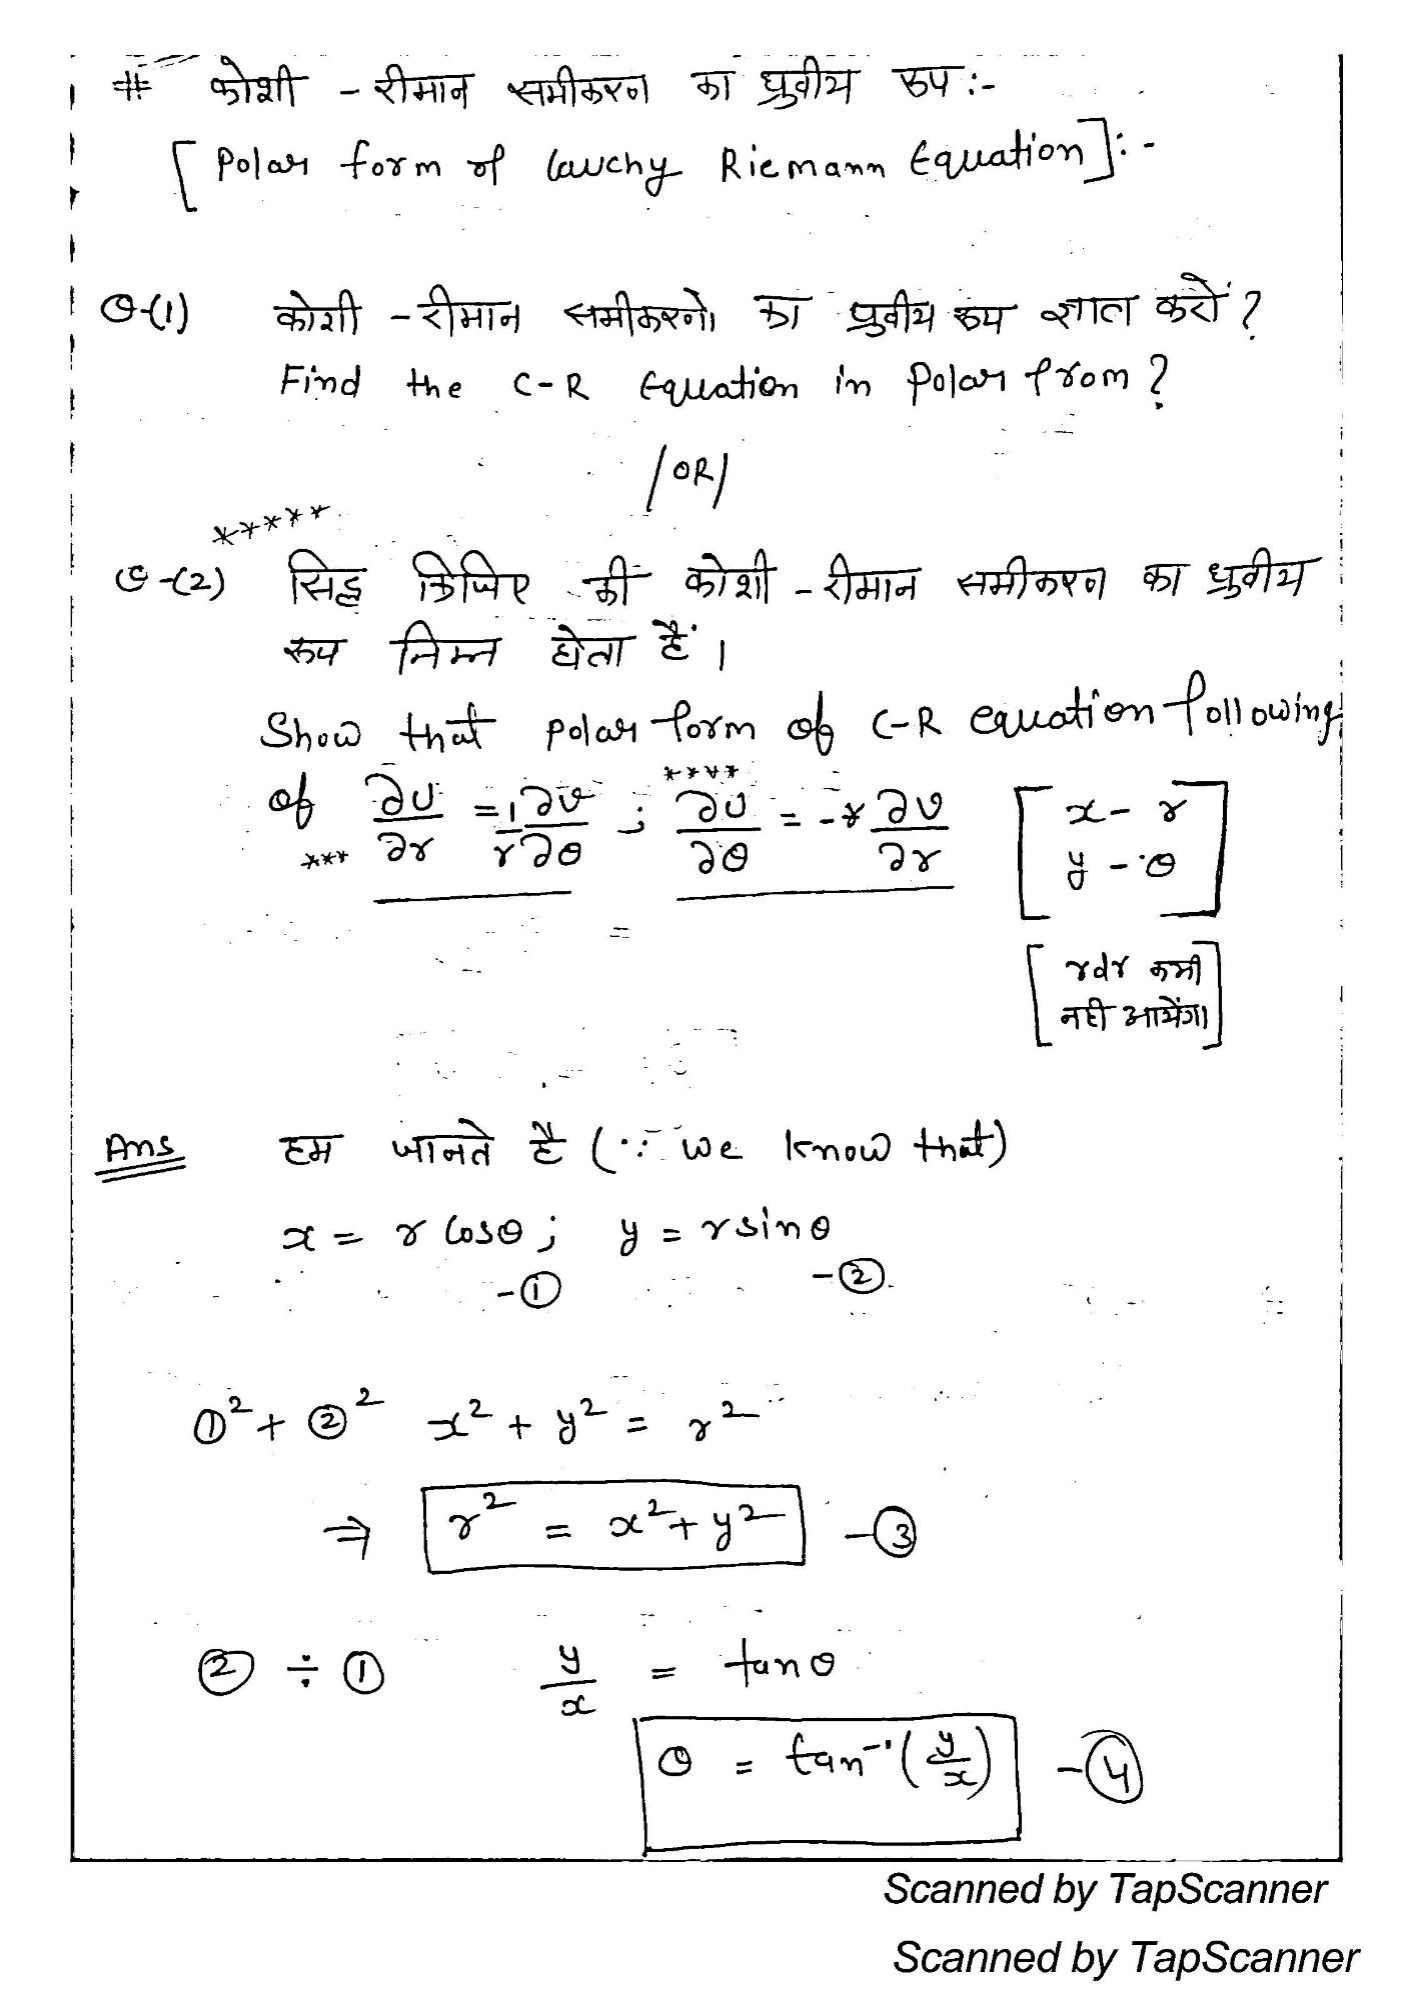 # कोशी - रीमान समीकरण का ध्रुवीय रूप :-
[ Polar form of Cauchy Riemann Equation ] : -
Q-(1) कोशी - रीमान समीकरणो का ध्रुवीय रूप ज्ञात करों ?
Find the C-R Equation in Polar from ?
/OR/
*****
Q-(2) सिद्ध किजिए की कोशी - रीमान समीकरण का ध्रुवीय
रूप निम्न होता हैं ।
Show that polar form of C-R equation following
****
of ∂U/∂r = 1/r ∂v/∂θ ; ∂U/∂θ = -r ∂v/∂r [ x - r
*** y - θ ]
[ rdr कभी
नही आयेंगा ]
Ans हम जानते है ( ∵ we know that )
x = r cosθ ; y = r sinθ
-① -②
①² + ②² x² + y² = r²
⇒ r² = x² + y² -③
② ÷ ① y/x = tanθ
θ = tan⁻¹ (y/x) -④
Scanned by TapScanner
Scanned by TapScanner